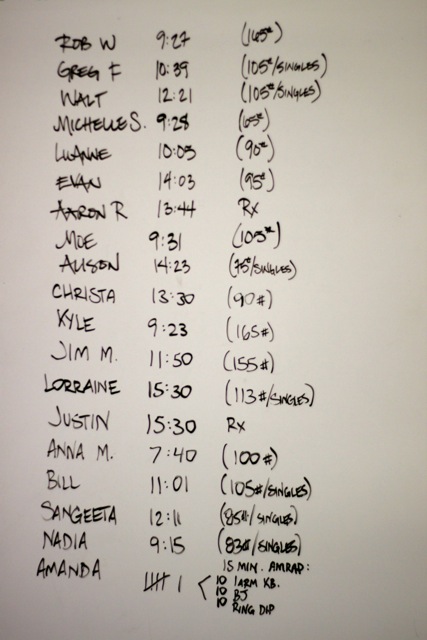 ROB W 9:27 (165#)
GREG F 10:39 (105#/SINGLES)
WALT 12:21 (105#/SINGLES)
MICHELLE S. 9:28 (65#)
LUANNE 10:05 (90#)
EVAN 14:03 (95#)
AARON R 13:44 Rx
MOE 9:31 (105#)
ALISON 14:23 (75#/SINGLES)
CHRISTA 13:30 (90#)
KYLE 9:23 (165#)
JIM M. 11:50 (155#)
LORRAINE 15:30 (113#/SINGLES)
JUSTIN 15:30 Rx
ANNA M. 7:40 (100#)
BILL 11:01 (105#/SINGLES)
SANGEETA 12:11 (85#/SINGLES)
NADIA 9:15 (83#/SINGLES)
AMANDA 15 MIN. AMRAP:
10 1ARM KB.
10 BJ
10 RING DIP